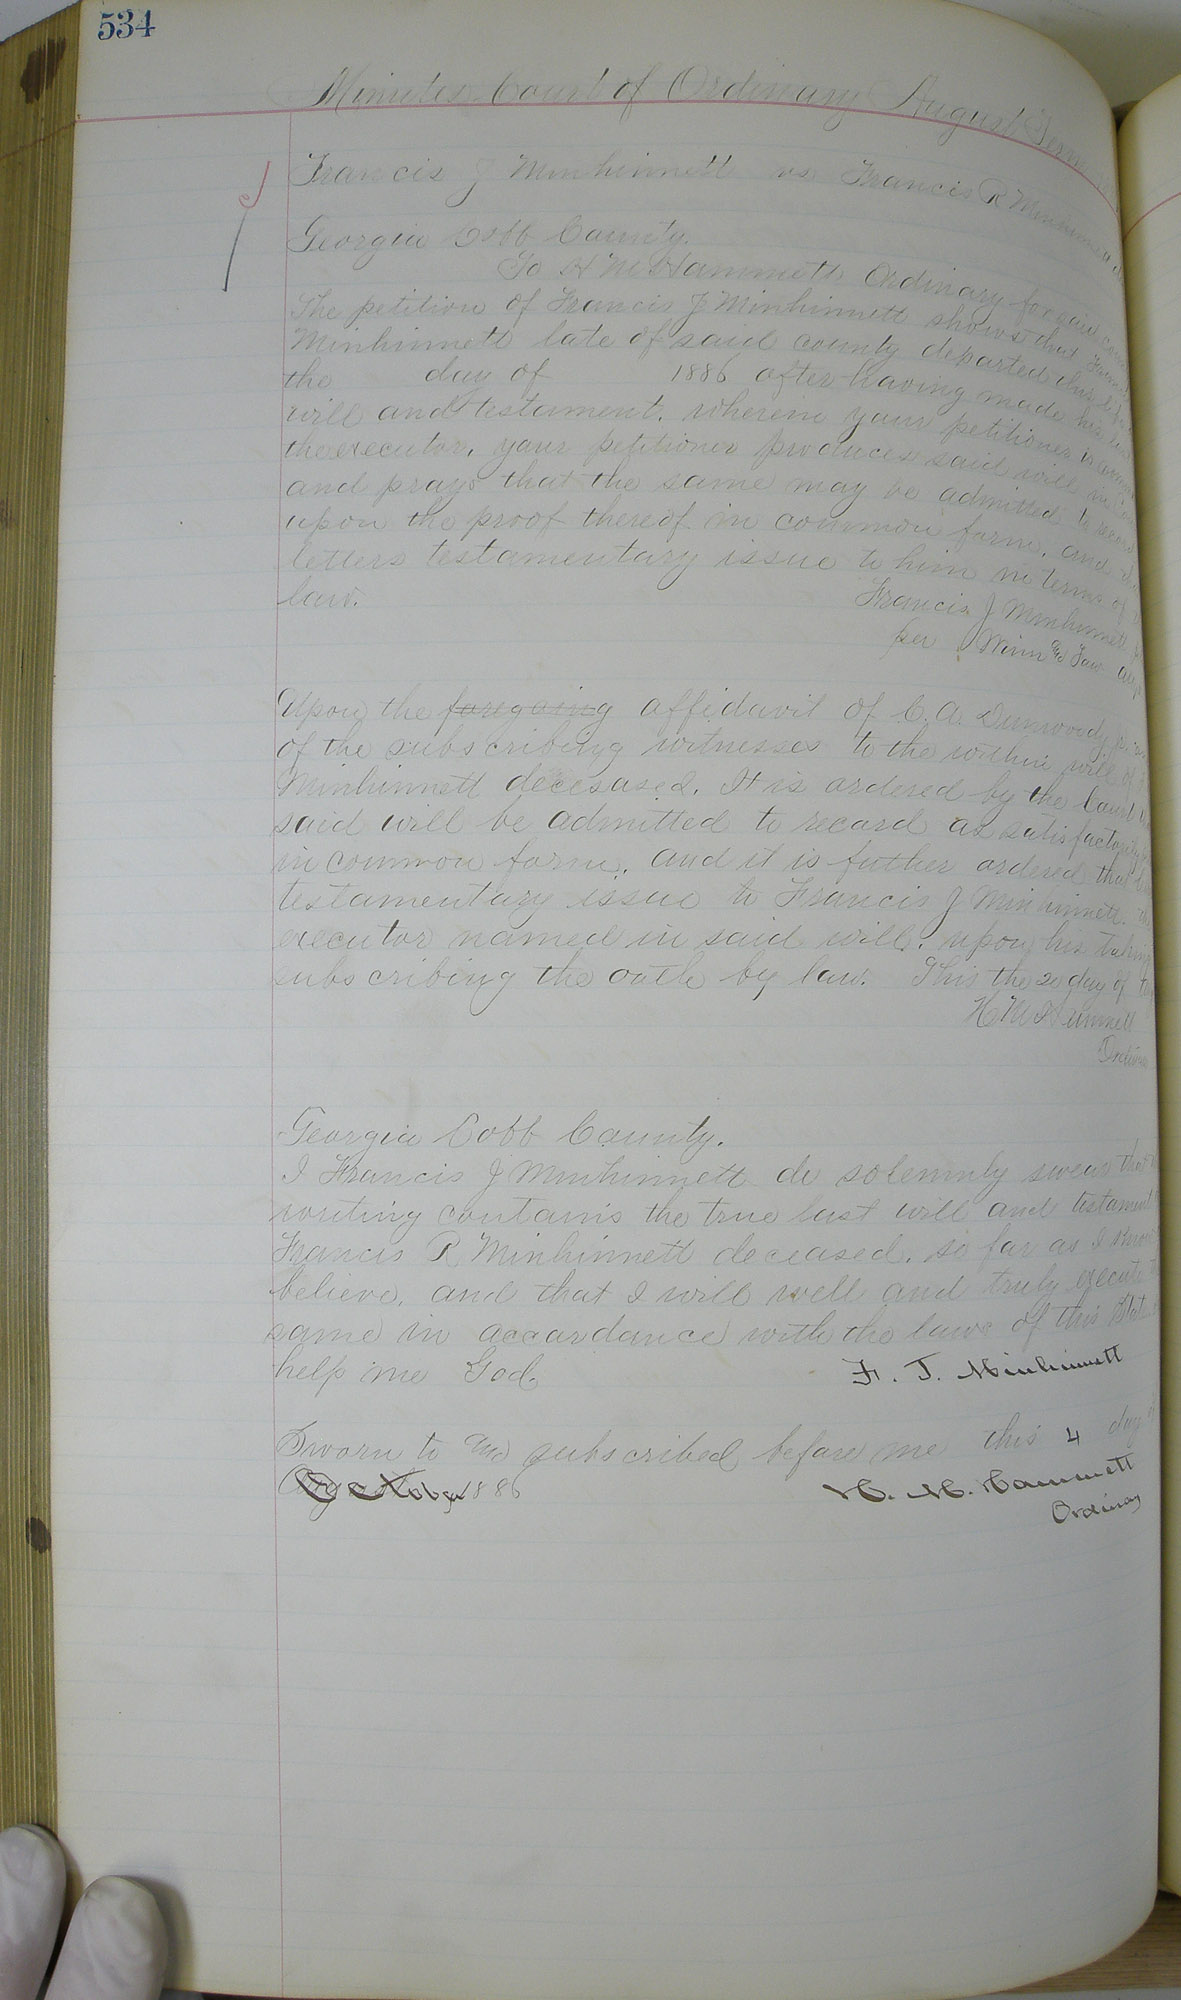 534
Minutes Court of Ordinary August Term
Francis J Minhinnett vs Francis R Minhinnett
Georgia Cobb County.
To H M Hammett Ordinary for said
The petition of Francis J Minhinnett shows that
Minhinnett late of said county departed this life
the day of 1886 after having made his last
will and testament. wherein your petitioner is
the executor. your petitioner produces said will in
and prays that the same may be admitted to record
upon the proof thereof in common form. and
letters testamentary issue to him in terms of
law. Francis J Minhinnett
per Winn
Upon the foregoing affidavit of C. A. Dunwoody
of the subscribing witnesses to the within will of
Minhinnett decesased. It is ordered by the Court
said will be admitted to record as satisfactorily
in common form. and it is futher ordered that
testamentary issue to Francis J Minhinnett. the
executor named in said will. upon his taking
subscribing the oath by law. This the 20 day of
H M Hammett
Ordinary
Georgia Cobb County.
I Francis J Minhinnett do solemnly swear that
writing contains the true last will and testament
Francis R Minhinnett deceased. so far as I know
believe. and that I will well and truly execute
same in accordance with the laws of this State
help me God. F. J. Minhinnett
Sworn to and subscribed before me this 4 day
October 1886 H. M. Hammett
Ordinary